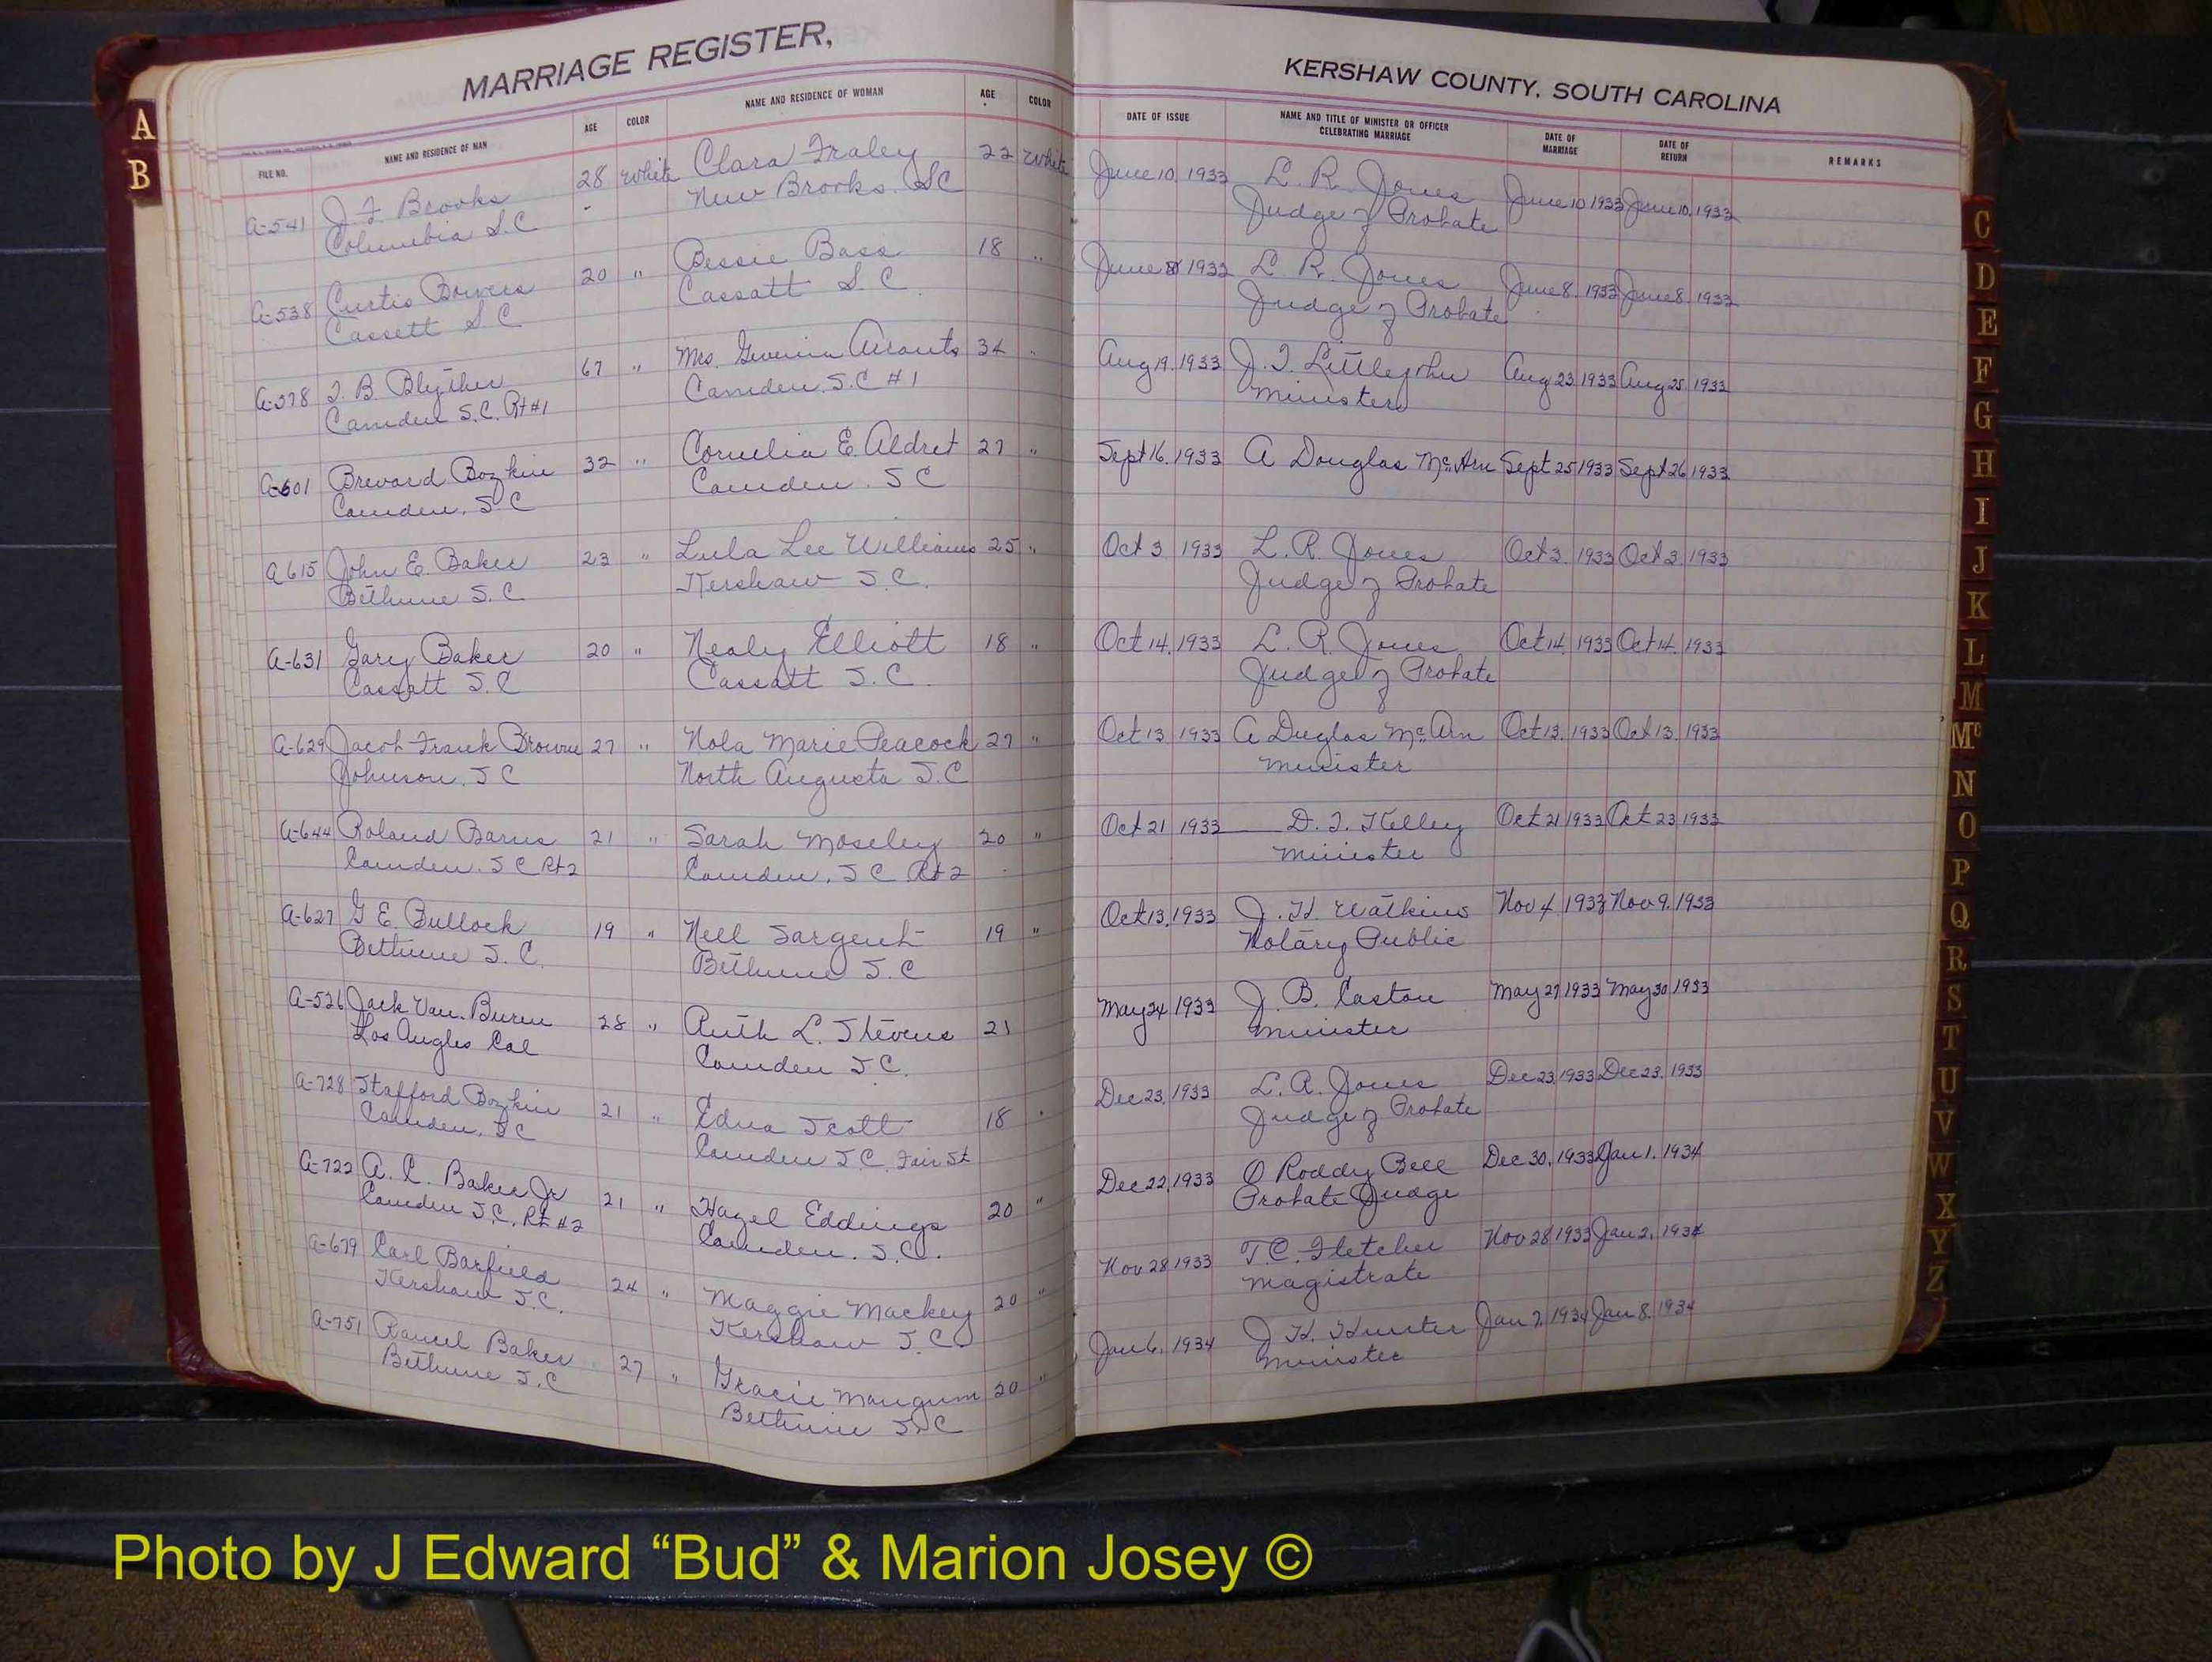 MARRIAGE REGISTER,
FILE NO. NAME AND RESIDENCE OF MAN AGE COLOR NAME AND RESIDENCE OF WOMAN AGE COLOR
A-541 J. F. Brooks 28 White Clara Fraley 22 White
Columbia S.C New Brooks SC
A-538 Curtis Bowers 20 " Bessie Bass 18 "
Cassett S C Cassatt S. C
A-578 T. B. Blyther 67 " Mrs. 34 "
Camden S.C. Rt #1 Camden, S.C #1
A-601 Brevard Bozkin 32 " Cornelia E. Aldret 27 "
Camden, S C Camden. S C
A 615 John E. Baker 23 " Lula Lee Williams 25 "
Bethune S. C Kershaw S. C.
A-631 Gary Baker 20 " Nealy Elliott 18 "
Cassatt S. C Cassatt S. C.
A-629 Jacob Frank Browne 27 " Nola Marie Peacock 27 "
Johnson. S C North Augusta S. C
A-644 Roland Barns 21 " Sarah Moseley 20 "
Camden. S C Rt 2 Camden. S C Rt 2
A-627 G E. Bullock 19 " Nell Sargent 19 "
Bethune S. C. Bethune S. C
A-526 Jack Van. Buren 28 " Ruth L. Stevens 21
Los Angles Cal Camden S. C.
A-728 Stafford Bozkin 21 " Edna Scott 18 "
Camden, S C Camden S. C. Fair St
A-722 A. C. Baker Jr 21 " Hazel Eddings 20 "
Camden S. C. Rt #2 Camden. S. C.
A-679 Carl Barfield 24 " Maggie Mackey 20 "
Kershaw S. C. Kershaw S. C.
A-751 Baker 27 " Gracie Mangum 20 "
Bethune S. C Bethune S. C
KERSHAW COUNTY, SOUTH CAROLINA
DATE OF ISSUE NAME AND TITLE OF MINISTER OR OFFICER CELEBRATING MARRIAGE DATE OF MARRIAGE DATE OF RETURN REMARKS
June 10, 1933 L. R. Jones June 10 1933 June 10, 1933
Judge of Probate
June 8 1933 L. R. Jones June 8 1933 June 8 1933
Judge of Probate
Aug 19. 1933 J. T. Littlejohn Aug 23 1933 Aug 25 1933
Minister
Sept 16. 1933 A Douglas Sept 25 1933 Sept 26 1933
Oct 3 1933 L. R. Jones Oct 3. 1933 Oct 3 1933
Judge of Probate
Oct 14. 1933 L. R. Jones Oct 14 1933 Oct 14. 1933
Judge of Probate
Oct 13 1933 A Duglas Oct 13. 1933 Oct 13. 1933
Minister
Oct 21 1933 D. T. Kelley Oct 21 1933 Oct 23 1933
Minister
Oct 13, 1933 J. H. Watkins Nov 4 1933 Nov 9. 1933
Notary Public
May 24 1933 J. B. Caston May 27 1933 May 30 1933
Minister
Dec 23, 1933 L. R. Jones Dec 23, 1933 Dec 23. 1933
Judge of Probate
Dec 22, 1933 O Roddy Bell Dec 30, 1933 Jan 1. 1934
Probate Judge
Nov 28 1933 T. C. Fletcher Nov 28 1933 Jan 2. 1934
Magistrate
Jan 6. 1934 J H. Hunter Jan 7. 1934 Jan 8. 1934
Minister
A
B
C
D
E
F
G
H
I
J
K
L
M
Mc
N
O
P
Q
R
S
T
U
V
W
X
Y
Z
Photo by J Edward “Bud” & Marion Josey ©